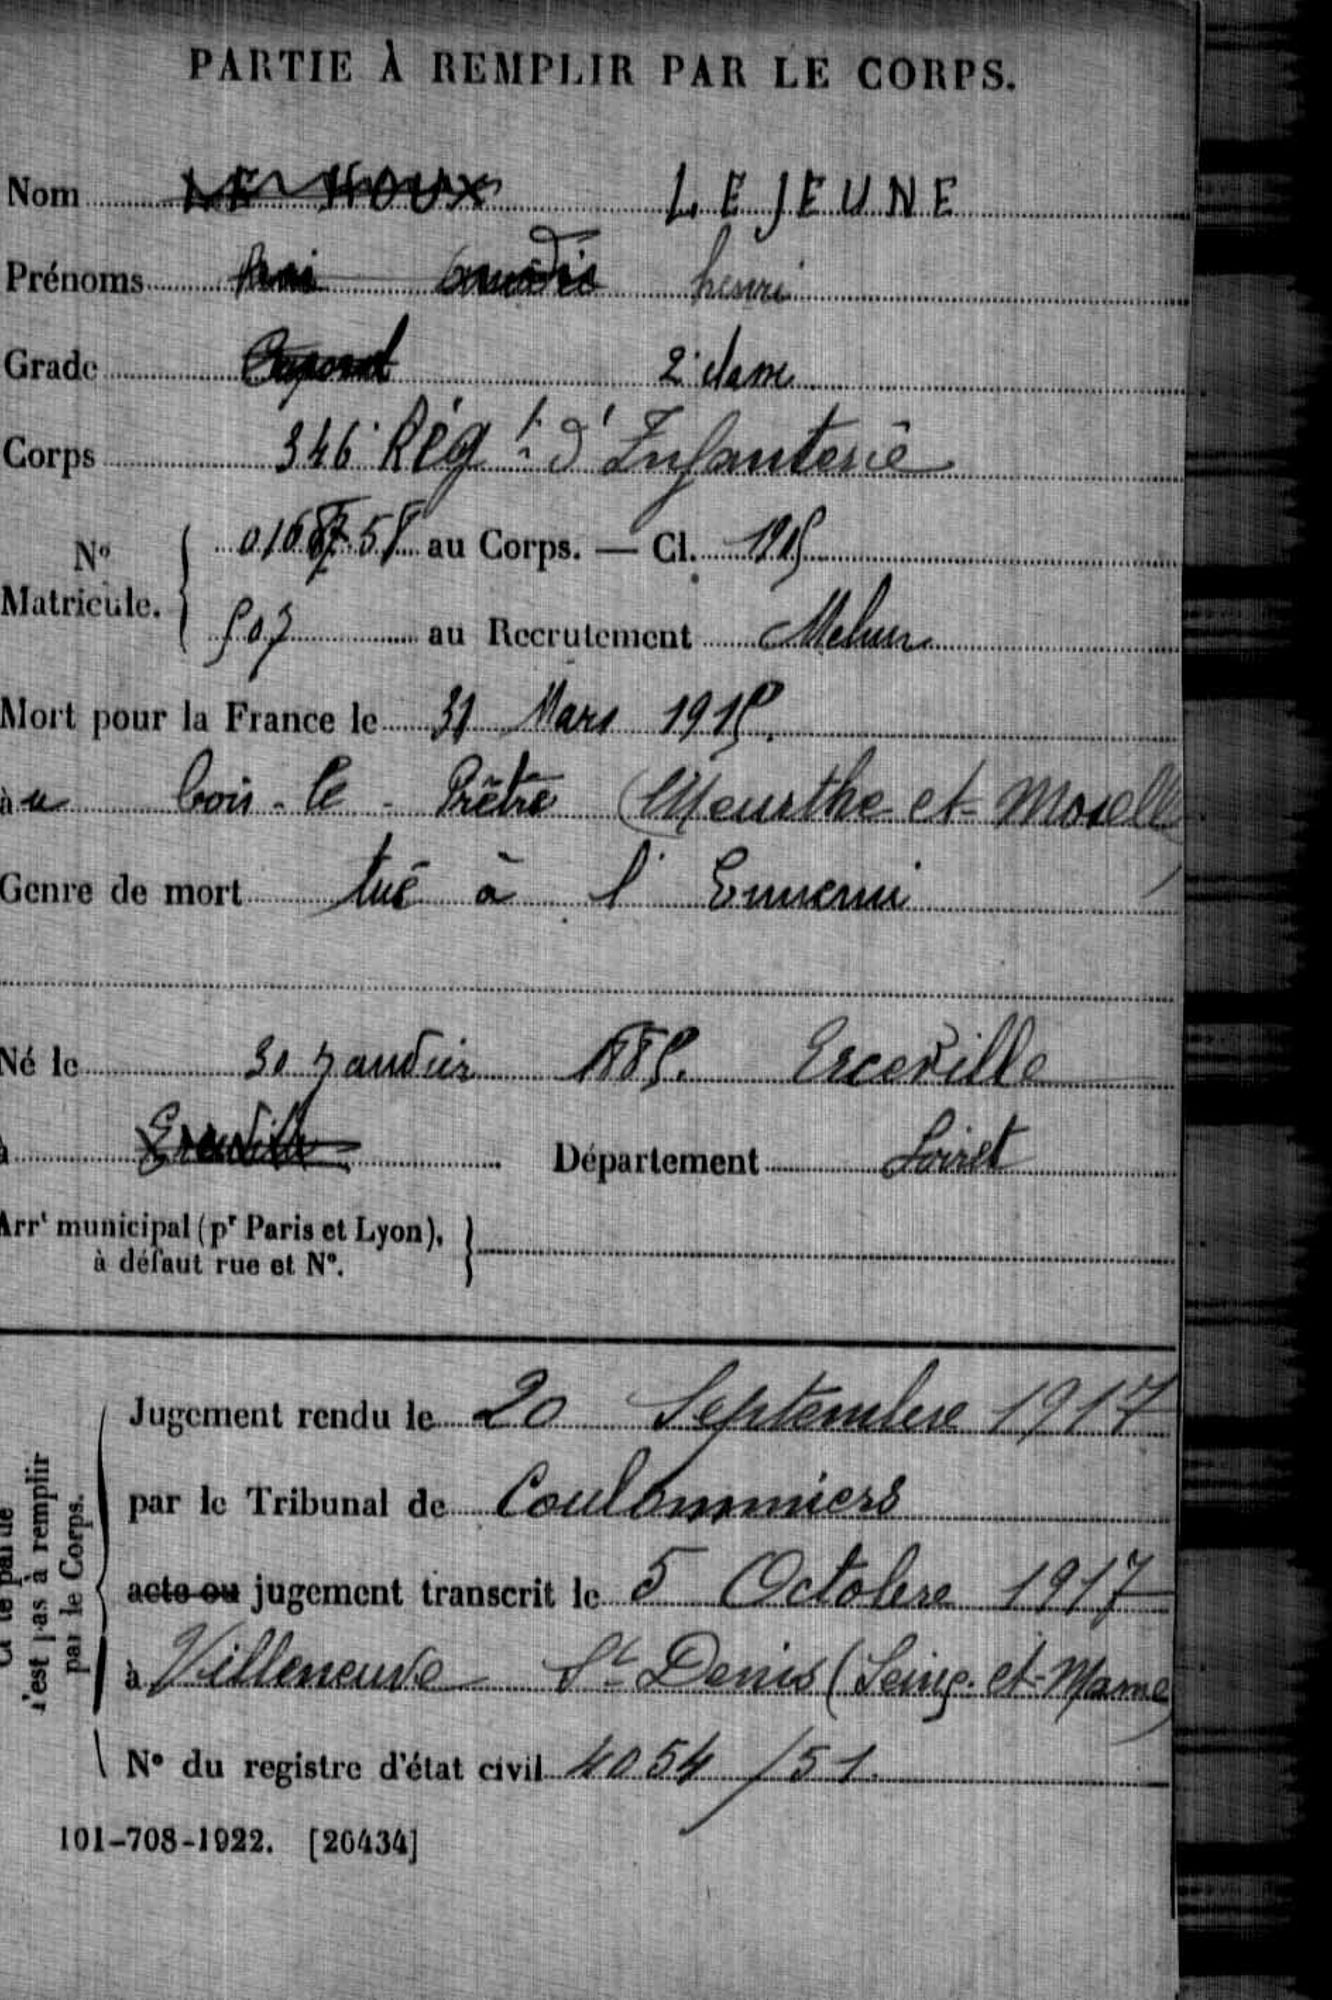 PARTIE À REMPLIR PAR LE CORPS.
Nom LE HOUX LEJEUNE
Prénoms henri
Grade Caporal 2e classe
Corps 346e Régt d'Infanterie
No Matricule. 58 au Corps. — Cl. 1905
507 au Recrutement Melun
Mort pour la France le 31 Mars 1915.
au bois-le-Prêtre (Meurthe et Moselle)
Genre de mort tué à l'Ennemi
Né le 30 Janvier 1885. Erceville
à Département Loiret
Arrt municipal (pr Paris et Lyon),
à défaut rue et N°.
Jugement rendu le 20 Septembre 1917
par le Tribunal de Coulommiers
acte ou jugement transcrit le 5 Octobre 1917
à Villeneuve St Denis (Seine-et-Marne)
N° du registre d'état civil 4054/51.
n'est pas à remplir
par le Corps.
101-708-1922. [26434]